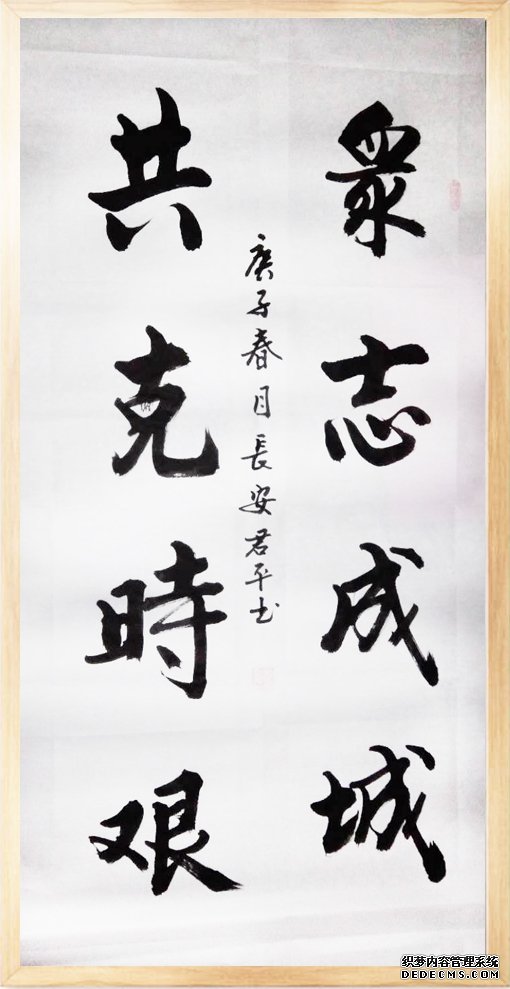 眾志成城
共克時艱
庚子春月長安君平书
织梦内容管理系统
DEDECMS.COM